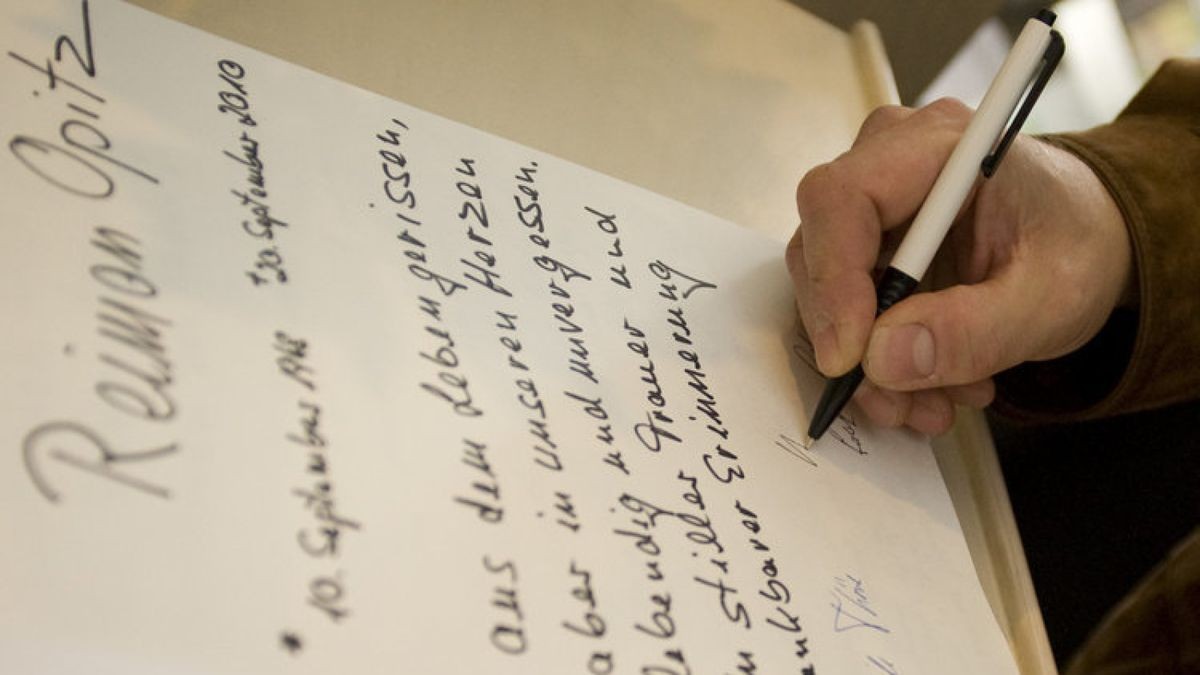 Reiman Opitz
* 10. September 1948 †20. September 2010
aus dem Leben gerissen,
aber in unseren Herzen
lebendig und unvergessen.
In stiller Trauer und
dankbarer Erinnerung